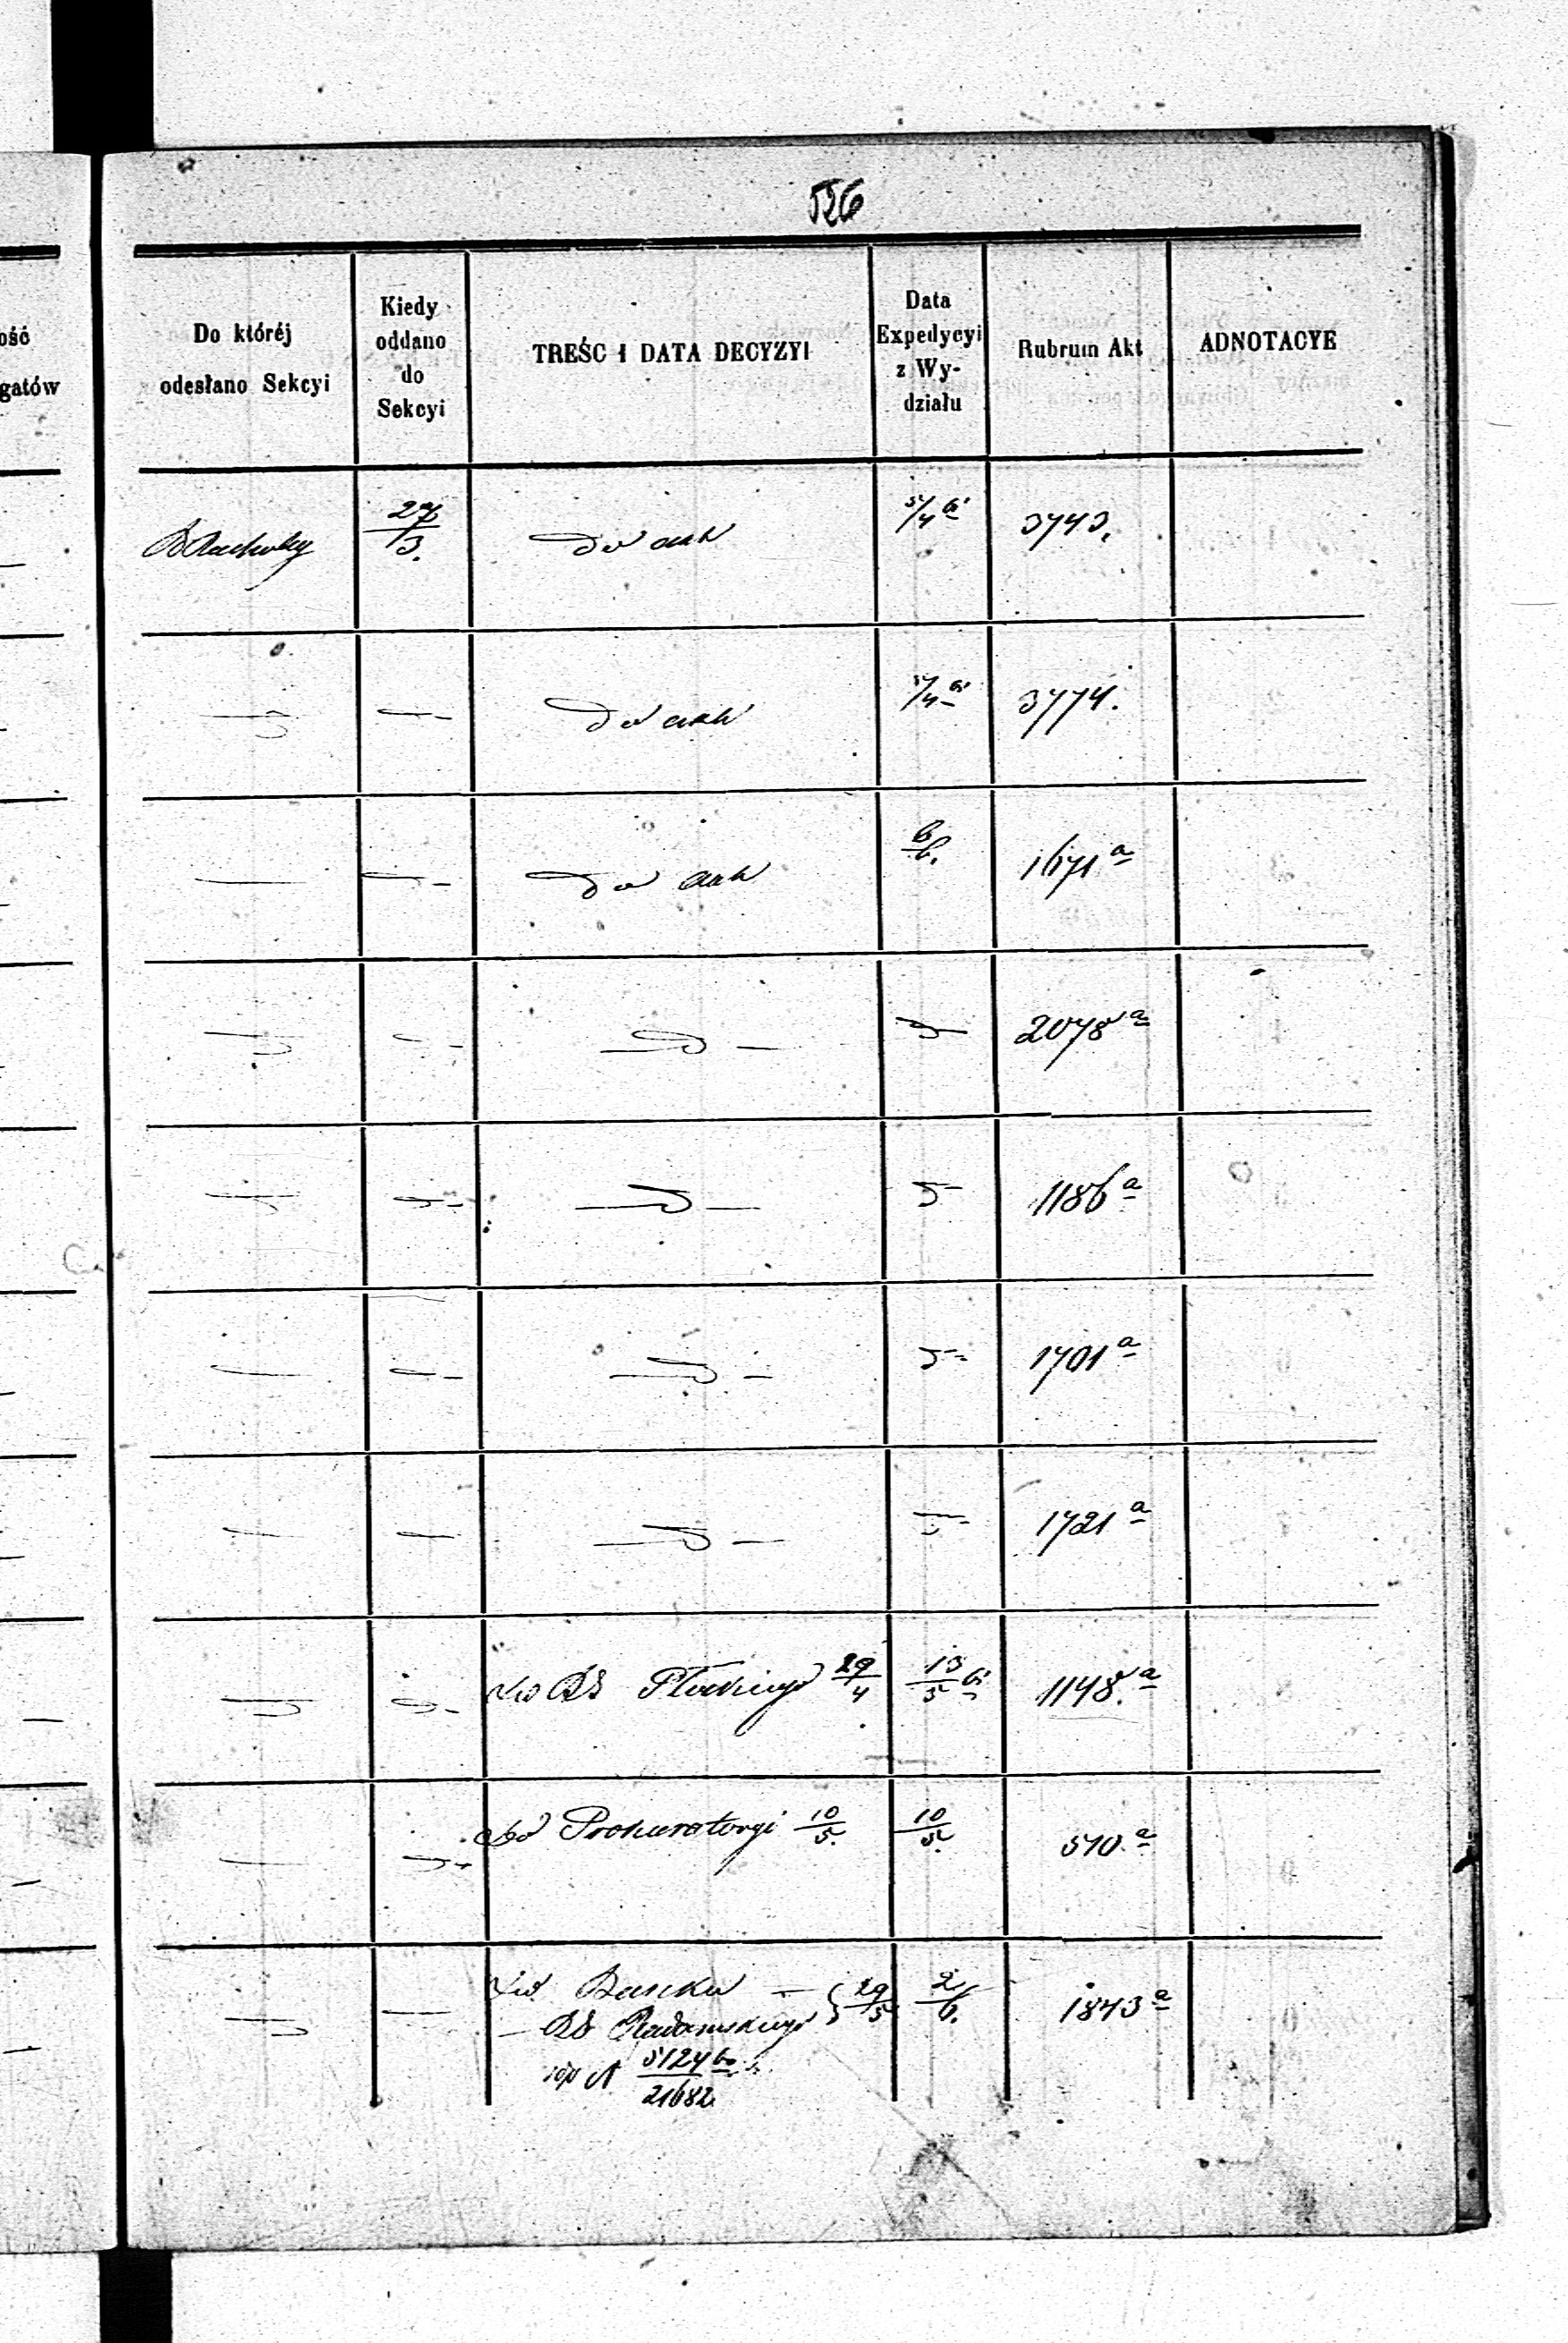 526
ość
gatów
Do któréj
odesłano Sekcyi
Kiedy
oddano
do
Sekcyi
TREŚC I DATA DECYZYI
Data
Expedycyi
z Wy-
działu
Rubrum Akt
ADNOTACYE
27/3. do akt 5/4 3743.
do akt 5/4 3774.
do akt 6/6. 1671 a
2078 a
1186 a
1701 a
1721 a
Do RS Płockiego 29/4 13/5 1148. a
Do Prokuratoryi 10/5. 10/5. 570. a
Do Banku — } 29/5 2/6. 1843 a
— RS Radomskiego
N 5124
21682